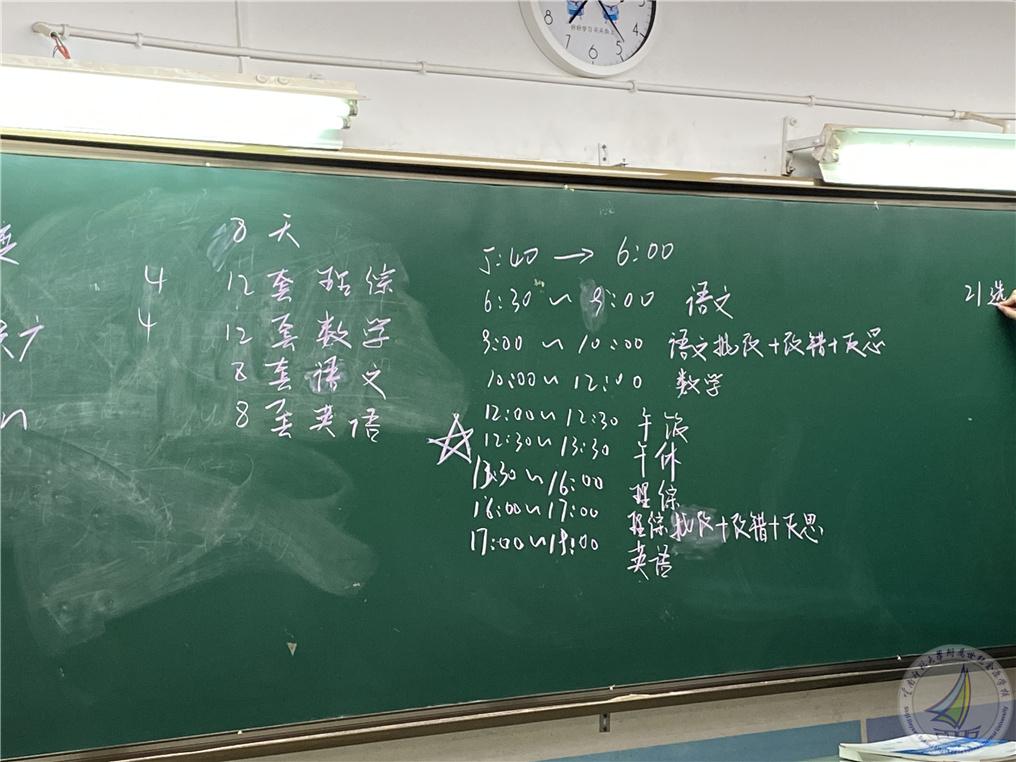 8 天
4 12 套 理 综
4 12 套 数 学
8 套 语 文
8 套 英 语
5:40 → 6:00
6:30 ~ 9:00 语文
9:00 ~ 10:00 语文批改+改错+反思
10:00 ~ 12:00 数学
12:00 ~ 12:30 午饭
12:30 ~ 13:30 午休
13:30 ~ 16:00 理综
16:00 ~ 17:00 理综批改+改错+反思
17:00 ~ 19:00 英语
21选
8 7 6 5 4